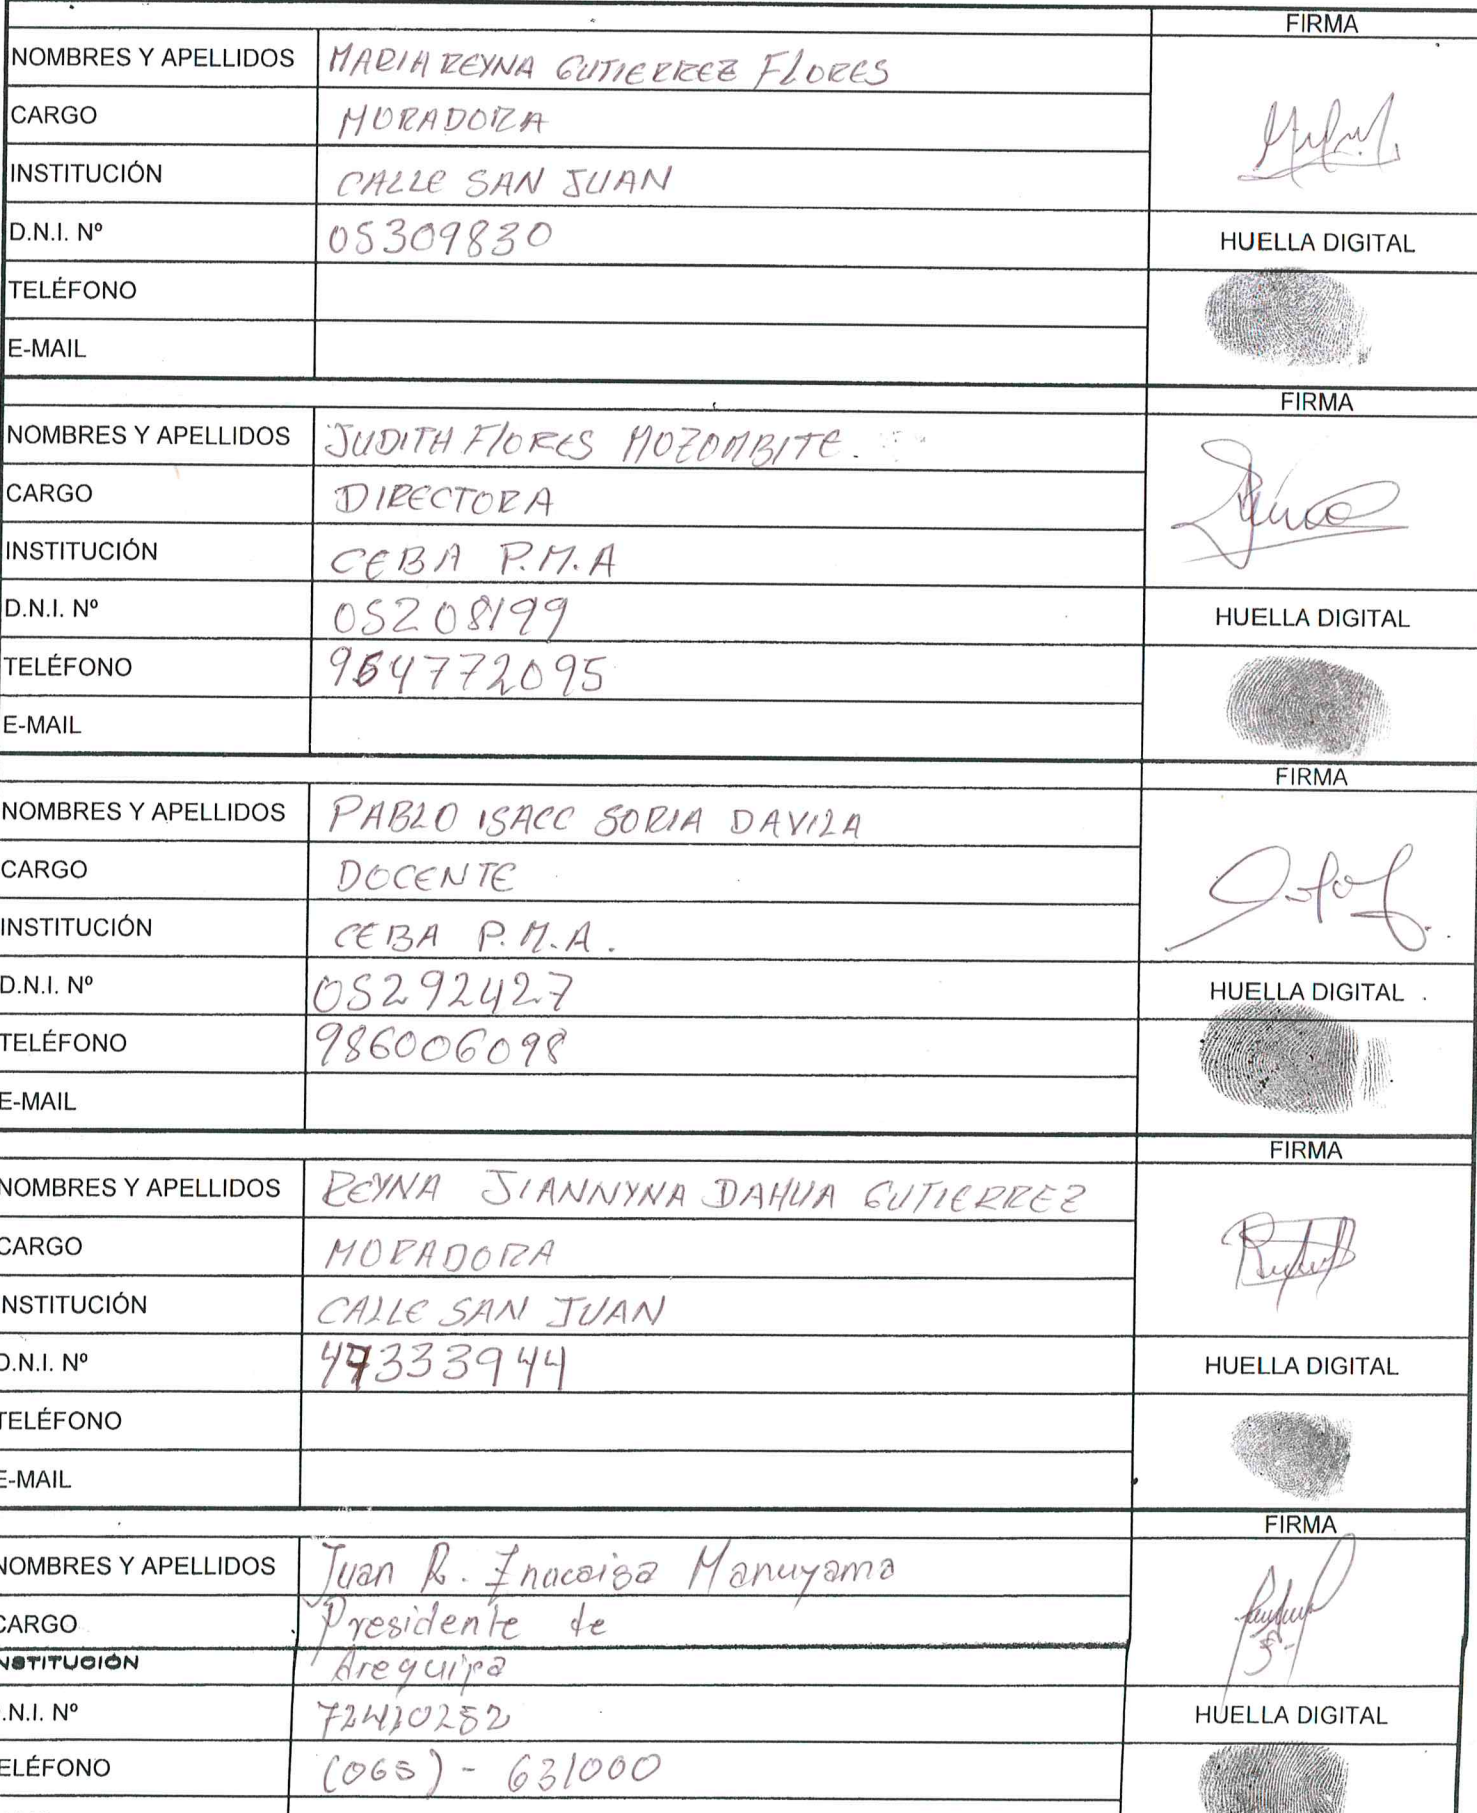 FIRMA
NOMBRES Y APELLIDOS MARIA REYNA GUTIERREZ FLORES
CARGO MORADORA
INSTITUCIÓN CALLE SAN JUAN
D.N.I. Nº 05309830
HUELLA DIGITAL
TELÉFONO
E-MAIL
FIRMA
NOMBRES Y APELLIDOS JUDITH FLORES MOZOMBITE.
CARGO DIRECTORA
INSTITUCIÓN CEBA P.M.A
D.N.I. Nº 05208199
HUELLA DIGITAL
TELÉFONO 964772095
E-MAIL
FIRMA
NOMBRES Y APELLIDOS PABLO ISACC SORIA DAVILA
CARGO DOCENTE
INSTITUCIÓN CEBA P.M.A.
D.N.I. Nº 05292427
HUELLA DIGITAL
TELÉFONO 986006098
E-MAIL
FIRMA
NOMBRES Y APELLIDOS REYNA JIANNYNA DAHUA GUTIERREZ
CARGO MORADORA
INSTITUCIÓN CALLE SAN JUAN
D.N.I. Nº 47333944
HUELLA DIGITAL
TELÉFONO
E-MAIL
FIRMA
NOMBRES Y APELLIDOS Juan R. Manuyama
CARGO Presidente de
NSTITUCIÓN Arequipa
.N.I. Nº
HUELLA DIGITAL
ELÉFONO (065) - 631000